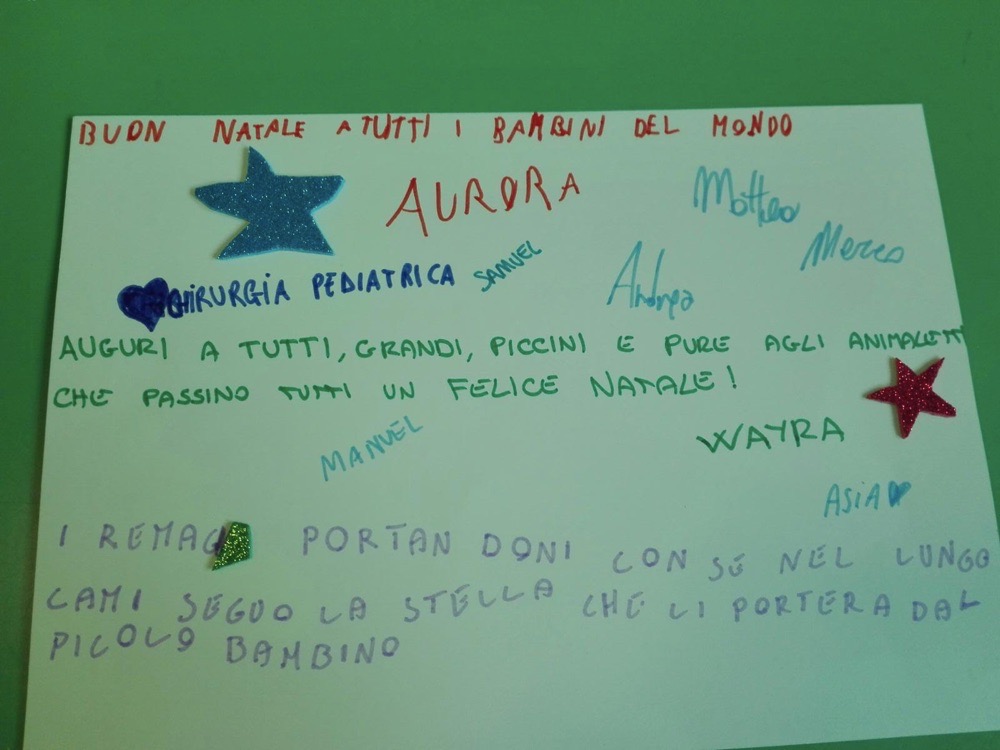 BUON NATALE A TUTTI I BAMBINI DEL MONDO
AURORA
Matteo
Marco
SAMUEL
CHIRURGIA PEDIATRICA
Andrea
AUGURI A TUTTI, GRANDI, PICCINI E PURE AGLI ANIMALETTI
CHE PASSINO TUTTI UN FELICE NATALE!
MANUEL
WAYRA
ASIA
I REMAG PORTAN DONI CON SE NEL LUNGO
CAMI SEGUO LA STELLA CHE LI PORTERA DAL
PICOLO BAMBINO